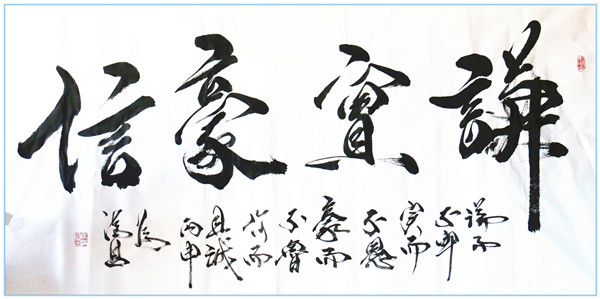 謙實豪信
謙而
不卑
實而
不愚
豪而
不奢
信而
且誠
丙申